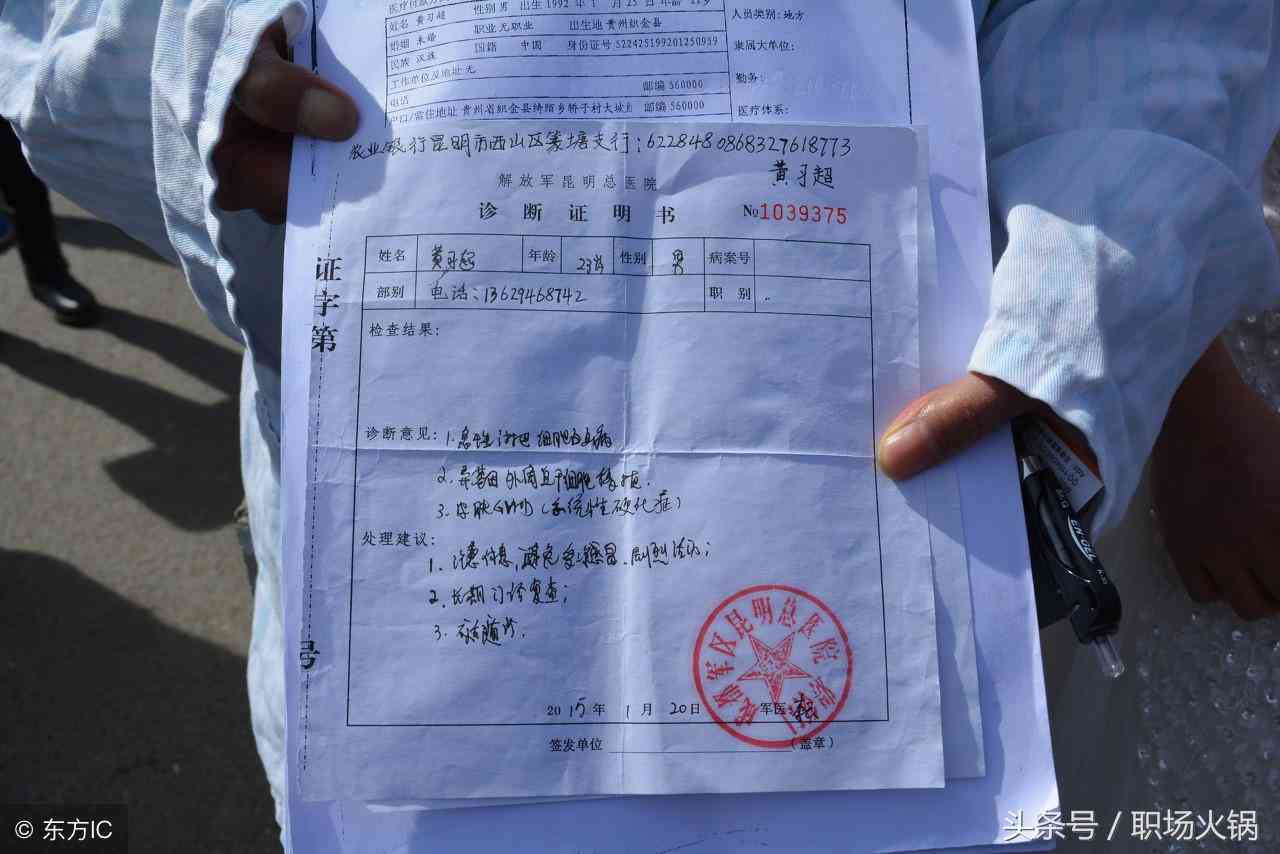 姓名 黄习超 性别 男 出生 1992 年 1 月 25 日 年龄 22岁
婚姻 未婚 职业 无职业 出生地 贵州织金县
民族 汉族 国籍 中国 身份证号 522425199201250959
工作单位及地址 无 邮编 560000
电话
户口/常住地址 贵州省织金县绮陌乡骄子村大坡组 邮编 560000
人员类别: 地方
隶属大单位:
勤务:
医疗体系:
农业银行昆明市西山区篆塘支行: 6228480868327618773
黄习超
解放军昆明总医院
诊断证明书 №1039375
姓名 黄习超 年龄 23岁 性别 男 病案号
部别 电话: 13629468742 职别
检查结果:
诊断意见: 1. 急性淋巴细胞白血病
2. 异基因外周血干细胞移植.
3. 皮肤GVHD (系统性硬化症)
处理建议:
1. 注意休息, 避免受凉感冒、剧烈活动;
2. 长期门诊复查;
3. 随诊.
2015 年 1 月 20 日 军医
签发单位 (盖章)
成都军区昆明总医院
证字第
号
© 东方IC
头条号 / 职场火锅